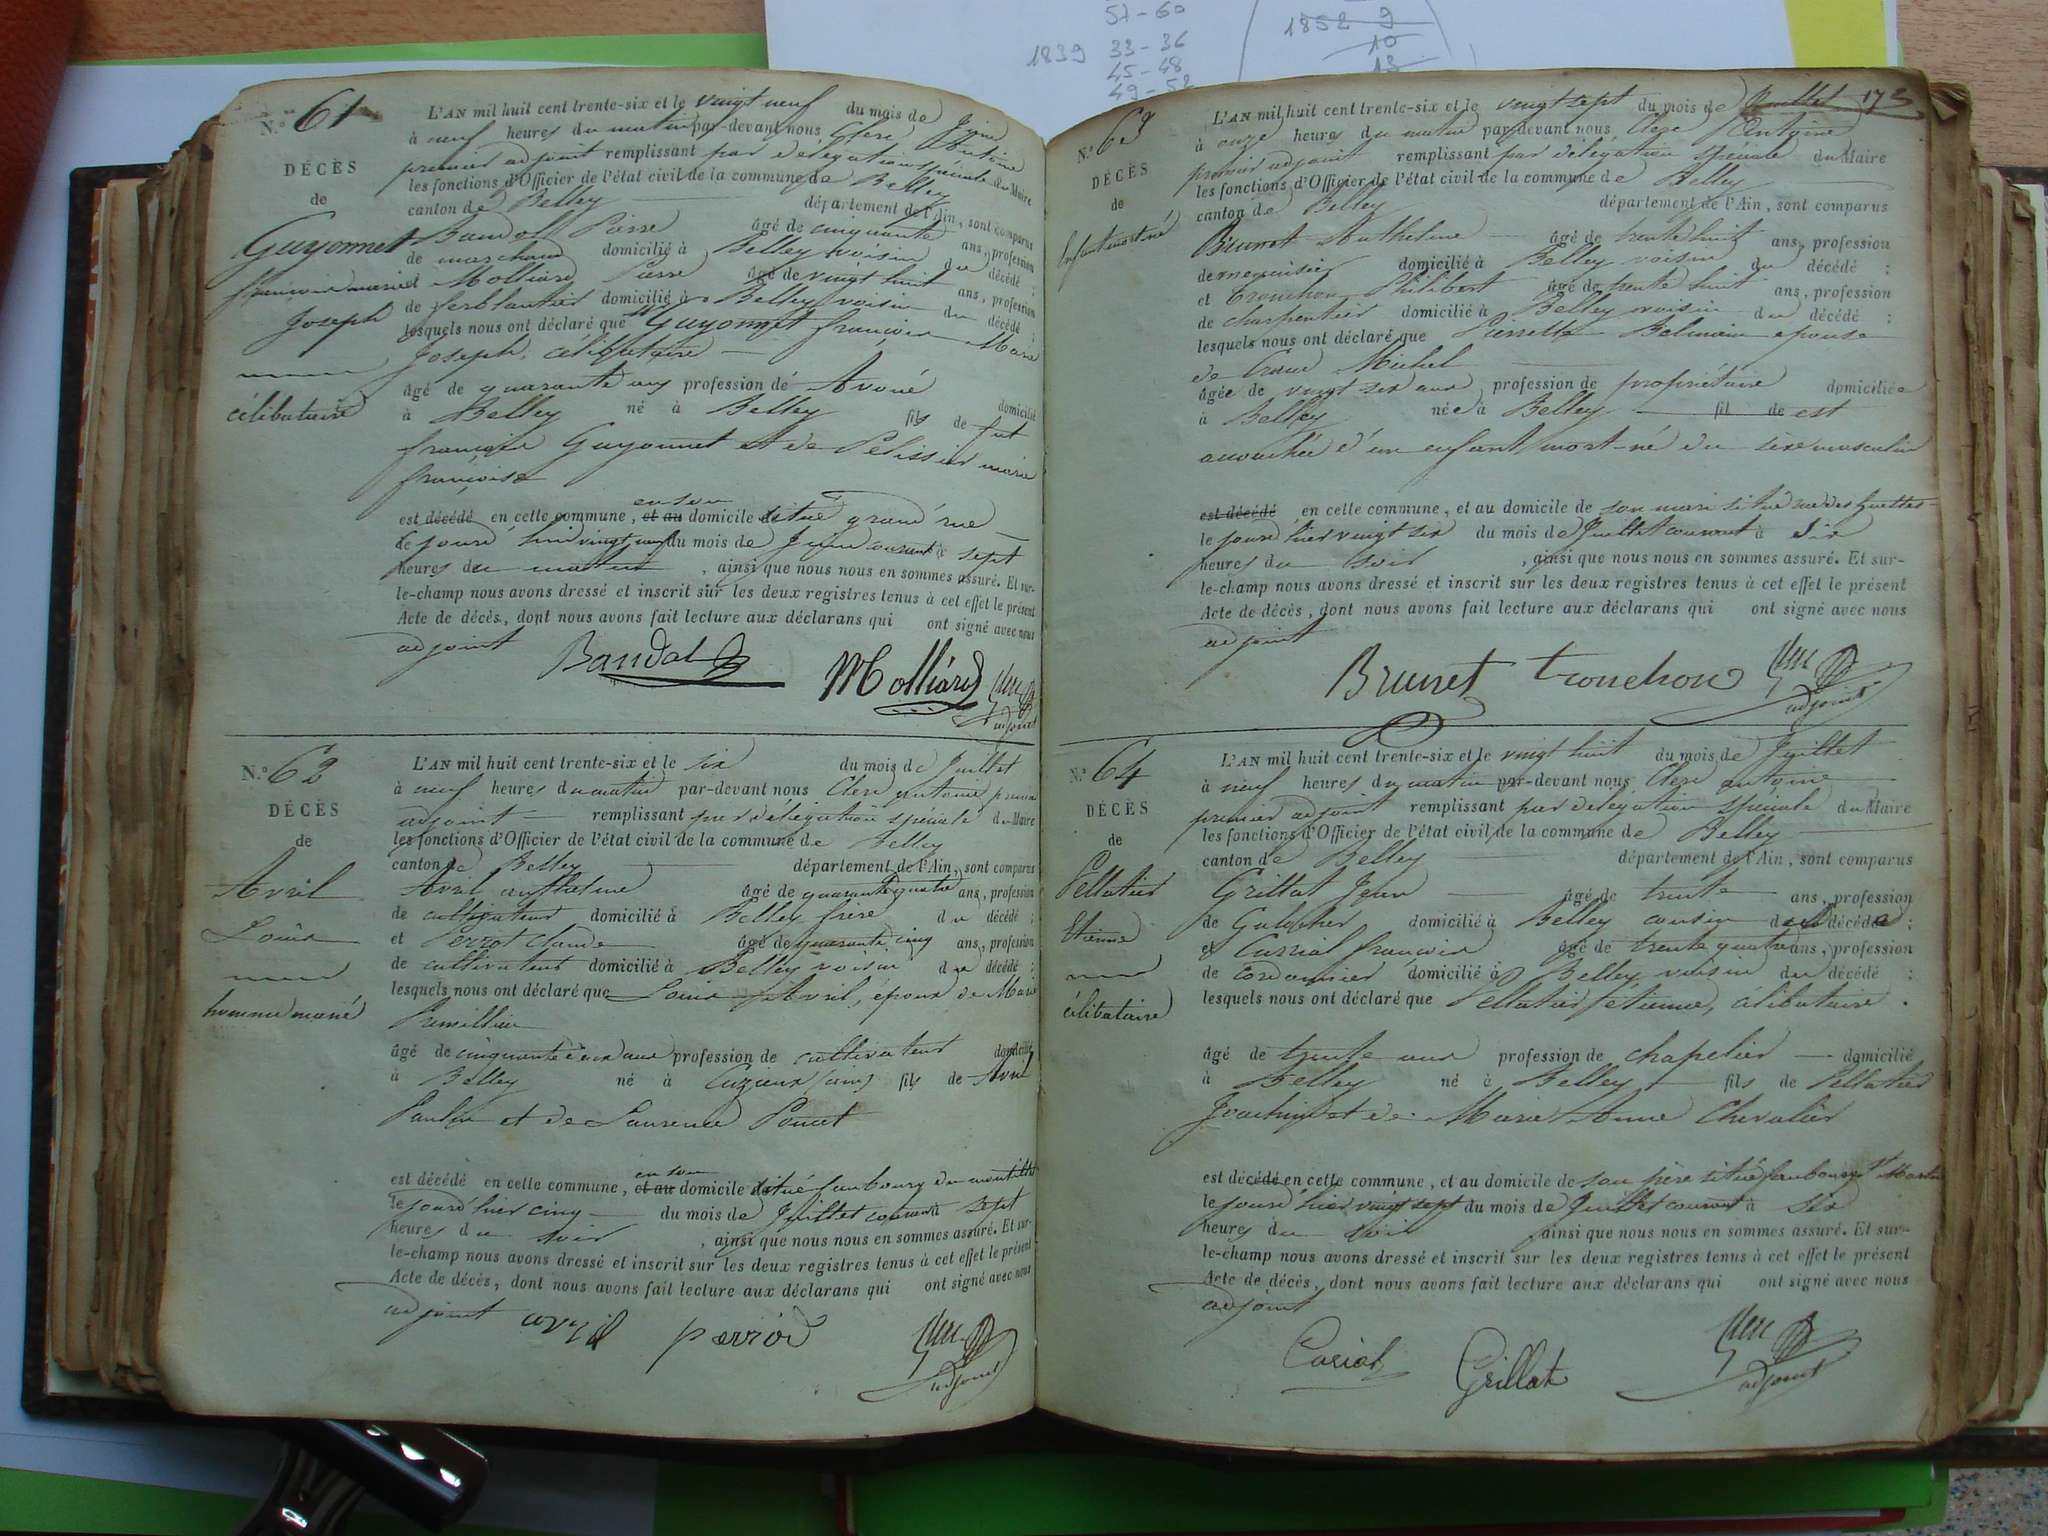 57-60
1839 33-36
45-48
49-52
1852 9
10
13
N.° 61
DÉCÈS
de
Guyonnet
françois marie
Joseph
célibataire
L'AN mil huit cent trente-six et le vingt neuf du mois de Juin
à neuf heures du matin par-devant nous Clerc Antoine
premier adjoint remplissant par délégation spéciale du Maire
les fonctions d'Officier de l'état civil de la commune de Belley
canton de Belley département de l'Ain, sont comparus
Bandol Pierre âgé de cinquante ans, profession
de marchand domicilié à Belley voisin du décédé :
et Molliard Pierre âgé de vingt huit ans, profession
de ferblantier domicilié à Belley voisin du décédé :
lesquels nous ont déclaré que Guyonnet françois Marie
Joseph, célibataire
âgé de quarante ans profession de Avoué domicilié
à Belley né à Belley fils de fut
françois Guyonnet et de Pélissier marie
françoise
est décédé en celle commune, et au en son domicile situé grand rue
le jourd'hui vingt neuf du mois de Juin courant à sept
heures du matin, ainsi que nous nous en sommes assuré. Et sur-
le-champ nous avons dressé et inscrit sur les deux registres tenus à cet effet le présent
Acte de décès, dont nous avons fait lecture aux déclarans qui ont signé avec nous
adjoint
Bandol Molliard Clerc
adjoint
N.° 62
DÉCÈS
de
Avril
Louis
homme marié
L'AN mil huit cent trente-six et le six du mois de Juillet
à neuf heures du matin par-devant nous Clerc Antoine premier
adjoint remplissant par délégation spéciale du Maire
les fonctions d'Officier de l'état civil de la commune de Belley
canton de Belley département de l'Ain, sont comparus
Avril anthelme âgé de quarante quatre ans, profession
de cultivateur domicilié à Belley frère du décédé :
et Perrot Claude âgé de quarante cinq ans, profession
de cultivateur domicilié à Belley voisin du décédé :
lesquels nous ont déclaré que Louis Avril, époux de Marie
Premillieu
âgé de cinquante deux ans profession de cultivateur domicilié
à Belley né à Cuzieux (ain) fils de Avril
et de Laurence Poncet
est décédé en celle commune, et au en son domicile situé faubourg du
le jourd'hier cinq du mois de Juillet courant à sept
heures du soir, ainsi que nous nous en sommes assuré. Et sur-
le-champ nous avons dressé et inscrit sur les deux registres tenus à cet effet le présent
Acte de décès, dont nous avons fait lecture aux déclarans qui ont signé avec nous
adjoint avril Clerc
adjoint
173
N.° 63
DÉCÈS
de
Enfant mort né
L'AN mil huit cent trente-six et le vingt sept du mois de Juillet
à onze heures du matin par-devant nous Clerc Antoine
premier adjoint remplissant par délégation spéciale du Maire
les fonctions d'Officier de l'état civil de la commune de Belley
canton de Belley département de l'Ain, sont comparus
Brunet Anthelme âgé de trente huit ans, profession
de menuisier domicilié à Belley voisin du décédé :
et Tronchon Philibert âgé de trente huit ans, profession
de charpentier domicilié à Belley voisin du décédé :
lesquels nous ont déclaré que Pierrette Belmain épouse
de Michel
âgée de vingt six ans profession de propriétaire domiciliée
à Belley née à Belley fil de est
accouchée d'un enfant mort-né du sexe masculin
est décédé en celle commune, et au domicile de son mari situé rue des
le jourd'hier vingt six du mois de Juillet courant à Six
heures du soir, ainsi que nous nous en sommes assuré. Et sur-
le-champ nous avons dressé et inscrit sur les deux registres tenus à cet effet le présent
Acte de décès, dont nous avons fait lecture aux déclarans qui ont signé avec nous
adjoint
Brunet tronchon Clerc
adjoint
N.° 64
DÉCÈS
de
Pellatier
Etienne
célibataire
L'AN mil huit cent trente-six et le vingt huit du mois de Juillet
à neuf heures du matin par-devant nous Clerc antoine
premier adjoint remplissant par délégation spéciale du Maire
les fonctions d'Officier de l'état civil de la commune de Belley
canton de Belley département de l'Ain, sont comparus
Grillat Jean âgé de trente ans, profession
de Galocher domicilié à Belley cousin du décédé :
et Carrial françois âgé de trente quatre ans, profession
de cordonnier domicilié à Belley voisin du décédé :
lesquels nous ont déclaré que Pellatier Etienne, célibataire.
âgé de trente ans profession de chapelier domicilié
à Belley né à Belley fils de Pellatier
Joachim et de Marie Anne Chevalier
est décédé en celle commune, et au domicile de son père situé faubourg St Martin
le jourd'hier vingt sept du mois de Juillet courant à Six
heures du soir ainsi que nous nous en sommes assuré. Et sur-
le-champ nous avons dressé et inscrit sur les deux registres tenus à cet effet le présent
Acte de décès, dont nous avons fait lecture aux déclarans qui ont signé avec nous
adjoint
Carial Grillat Clerc
adjoint